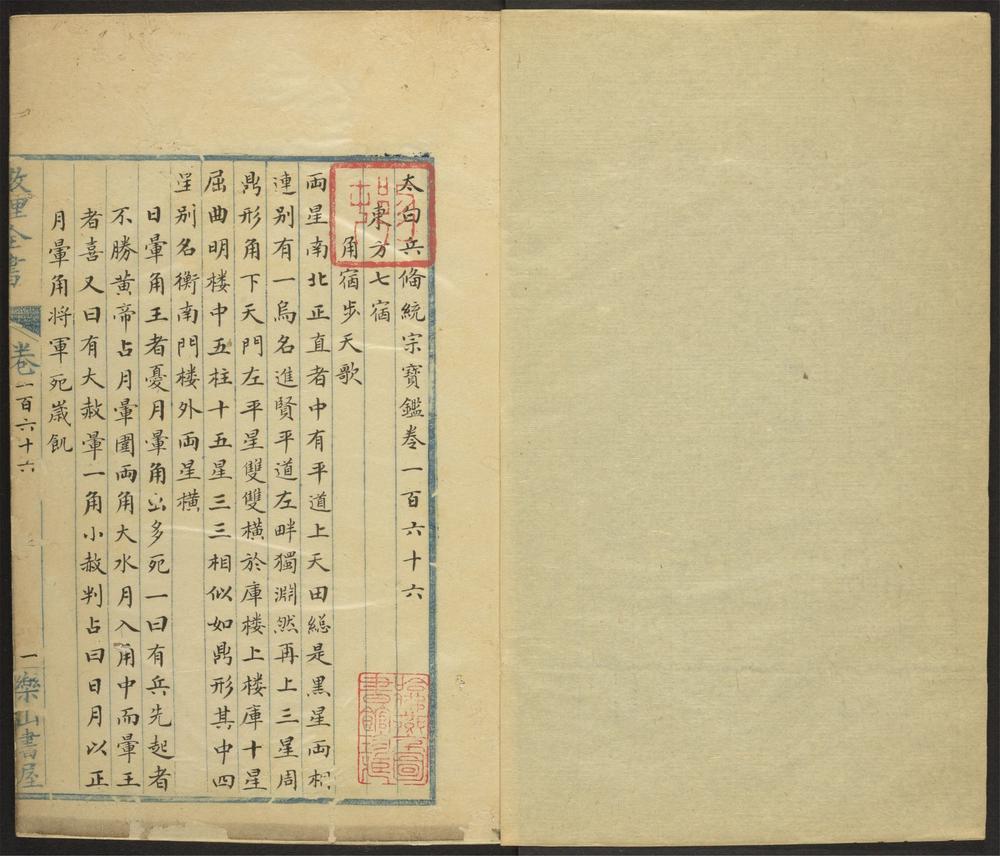 太白兵備統宗寶鑑卷一百六十六
東方七宿
角宿步天歌
両星南北正直者中有平道上天田緫是黒星両相
連别有一烏名進賢平道左畔獨淵然再上三星周
鼎形角下天門左平星雙雙橫於庫楼上楼庫十星
屈曲明楼中五柱十五星三三相似如鼎形其中四
星别名衡南門楼外両星橫
日暈角王者憂月暈角出多死一曰有兵先起者
不勝黄帝占月暈圍両角大水月入角中而暈王
者喜又曰有大赦暈一角小赦判占曰日月以正
月暈角將軍死歳飢
全書
卷一百六十六
一
樂山書屋